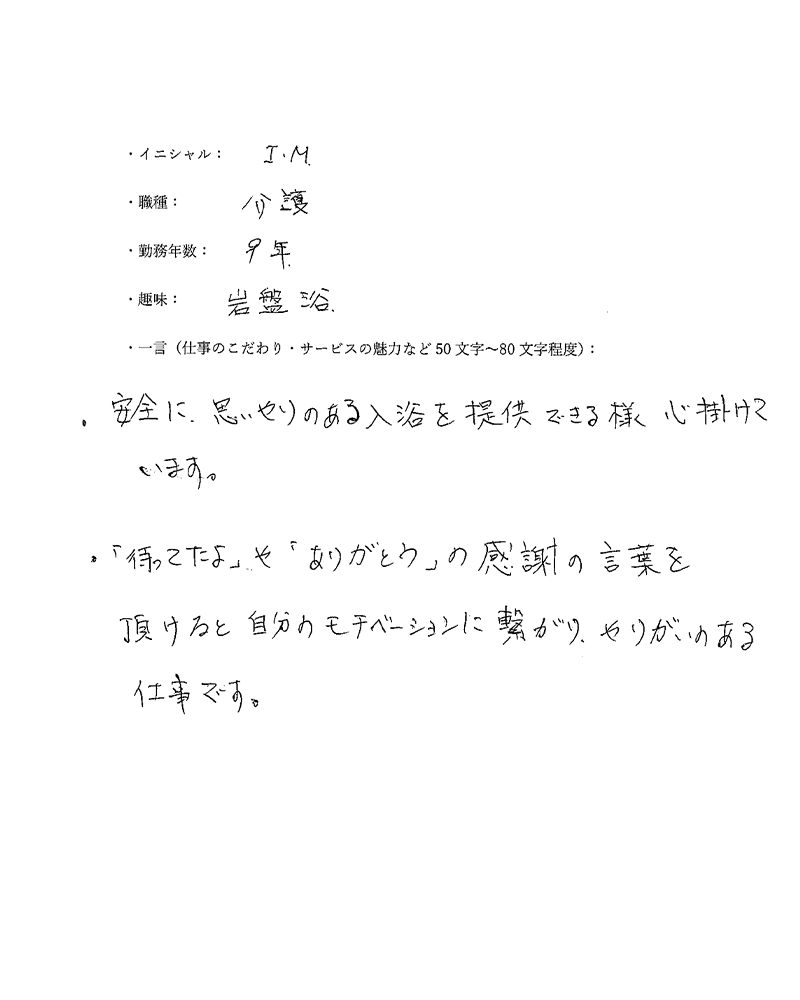 ・イニシャル： I・M
・職種： 介護
・勤務年数： 9年
・趣味： 岩盤浴.
・一言（仕事のこだわり・サービスの魅力など 50 文字～80 文字程度）：
・安全に、思いやりのある入浴を提供できる様 心掛けて
います。
・「待ってたよ」や「ありがとう」の感謝の言葉を
頂けると自分のモチベーションに繋がり、やりがいのある
仕事です。